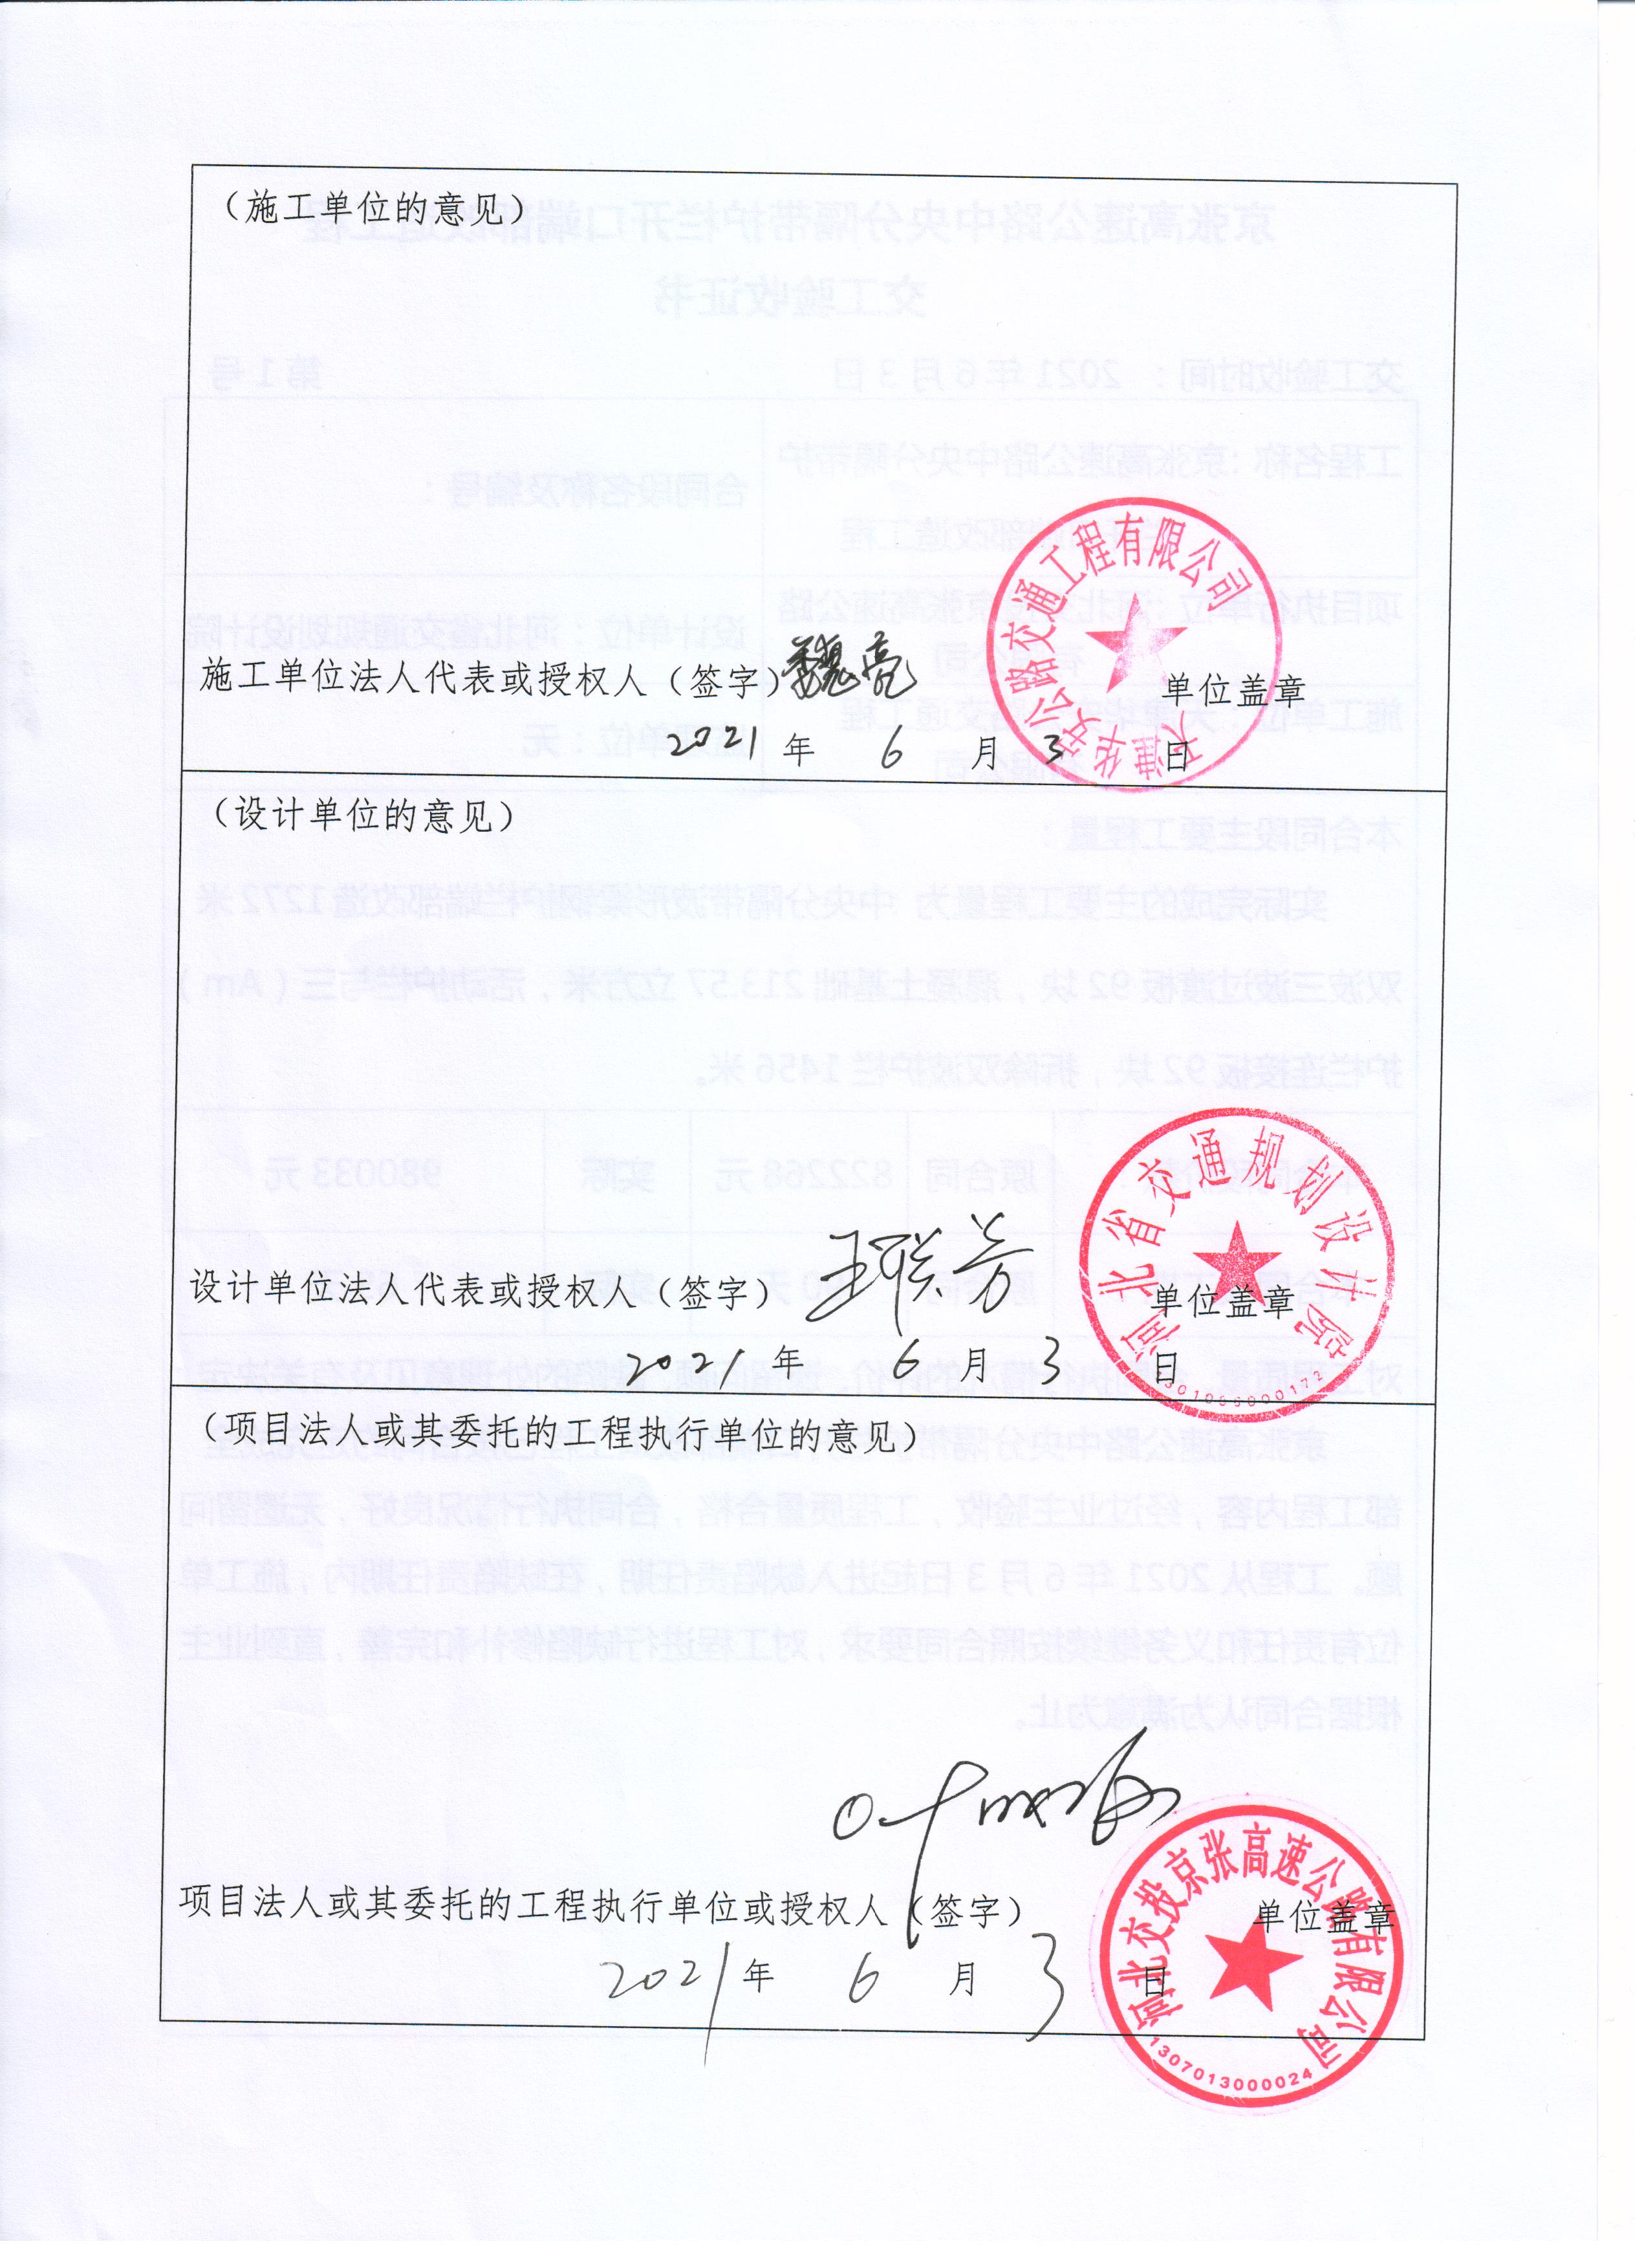 （施工单位的意见）
天津华安公路交通工程有限公司
施工单位法人代表或授权人（签字）魏亮 单位盖章
2021 年 6 月 3 日
（设计单位的意见）
河北省交通规划设计院
设计单位法人代表或授权人（签字）王联芳 单位盖章
2021 年 6 月 3 日
（项目法人或其委托的工程执行单位的意见）
河北交投京张高速公路有限公司
项目法人或其委托的工程执行单位或授权人（签字） 单位盖章
2021 年 6 月 3 日
1307013000024